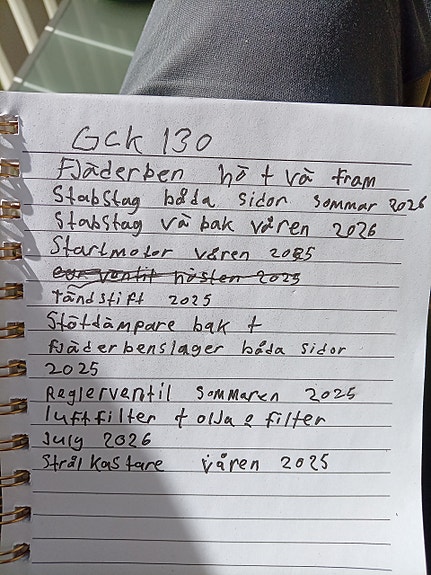 GCK 130
Fjäderben hö + vä fram
Stabstag båda sidor sommar 2026
Stabstag vä bak våren 2026
Startmotor våren 2025
egr ventil hösten 2025
Tändstift 2025
Stötdämpare bak +
Fjäderbenslager båda sidor
2025
Reglerventil sommaren 2025
luftfilter + olja & filter
July 2026
Strålkastare våren 2025